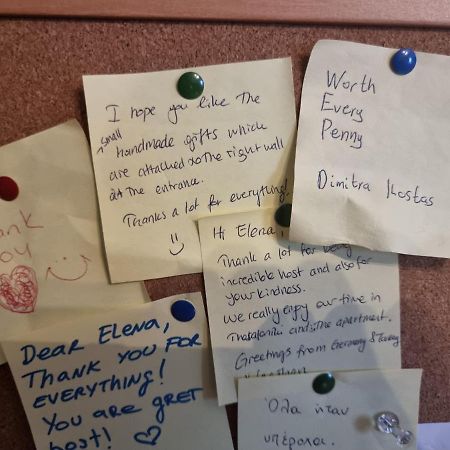 I hope you like the
small
handmade gifts which
are attached to the right wall
at the entrance.
Thanks a lot for everything!
Worth
Every
Penny
Dimitra Kostas
ank
Hi Elena,
Thank a lot for being
incredible host and also for
your kindness.
We really enjoy our time in
and the apartment.
Greetings from Germany &
Dear Elena,
Thank you for
everything!
You are gret
host!
Όλα ήταν
υπέροχα.